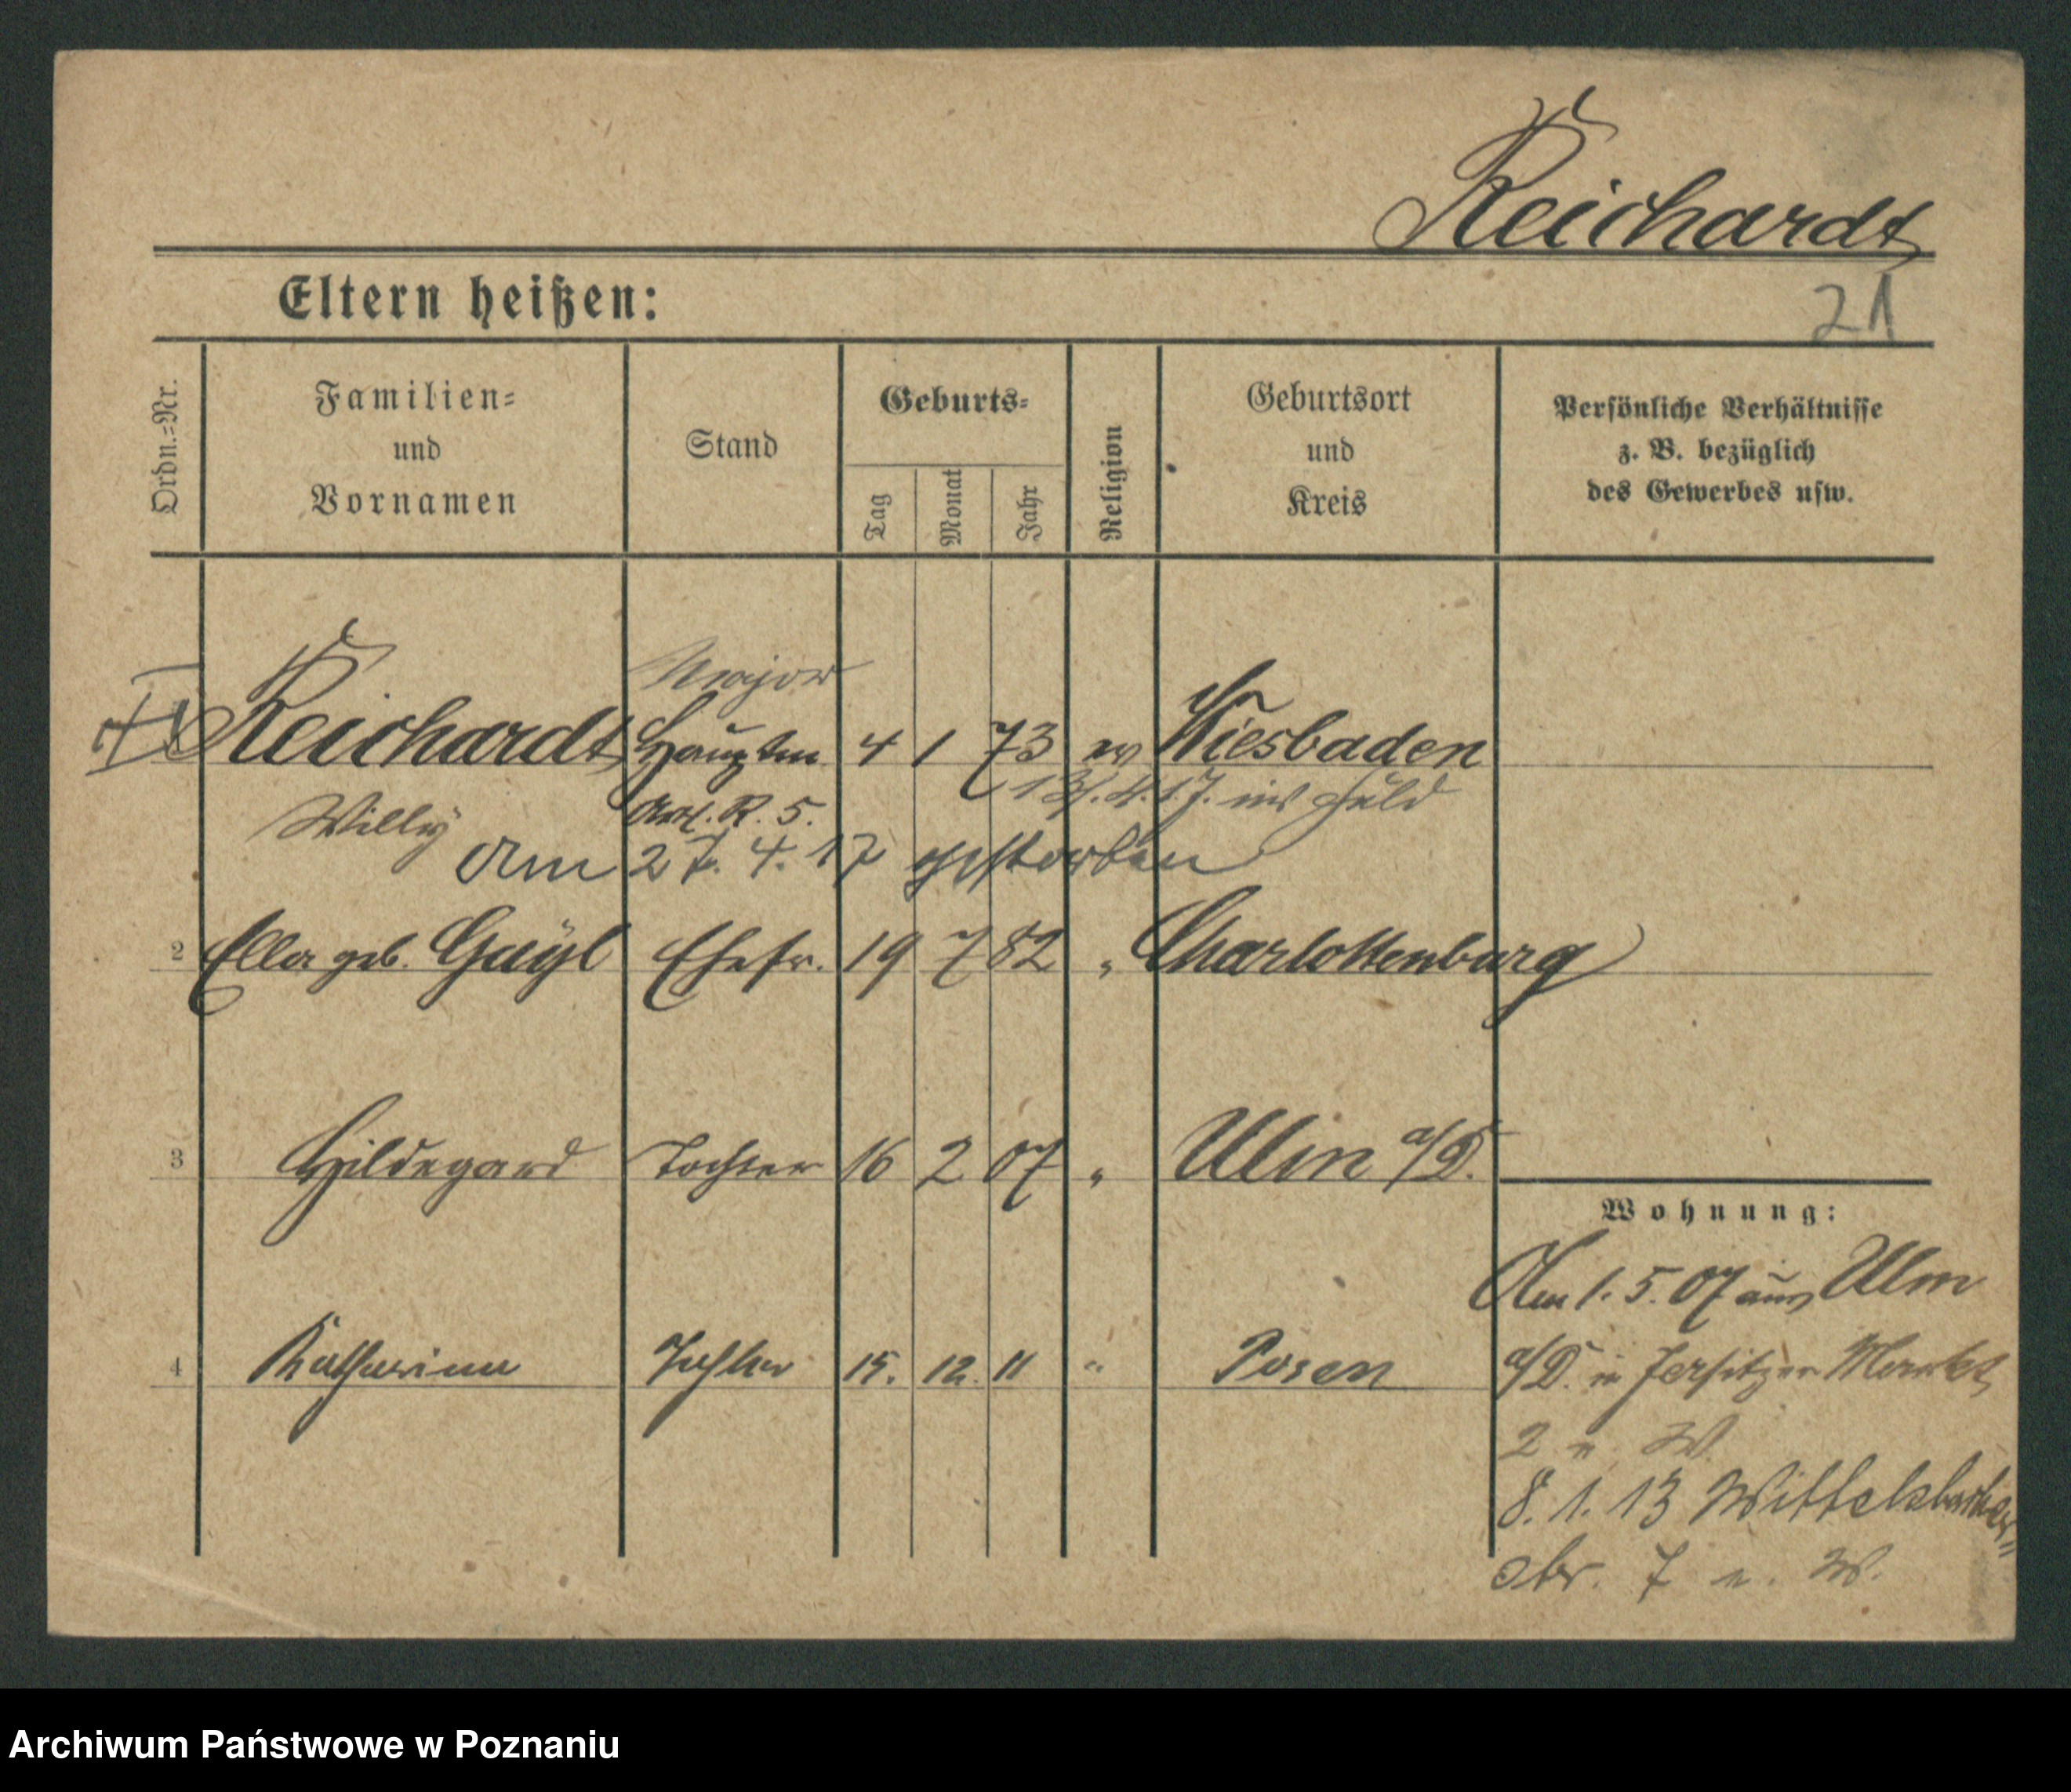 Reichardt
Eltern heißen:
21
Ordn.=Nr.
Familien=
und
Vornamen
Stand
Geburts=
Tag
Monat
Jahr
Religion
Geburtsort
und
Kreis
Persönliche Verhältnisse
z. B. bezüglich
des Gewerbes usw.
Major
Reichardt Hauptm 4 1 73 ev Wiesbaden
Willy Art. R. 5. 13/.4.17. ins Feld
Am 27. 4. 17 gestorben
2 Ella geb. Gayl Ehefr. 19 7 82 " Charlottenburg
3 Hildegard Tochter 16 2 07 " Ulm a/D.
Wohnung:
Am 1. 5. 07 aus Ulm
4 Katharina Tochter 15. 12. 11 " Posen
a/D. in Jersitzer Markt
2 n. W.
8. 1. 13 Wittelsbacher=
str. 7 n. W.
Archiwum Państwowe w Poznaniu